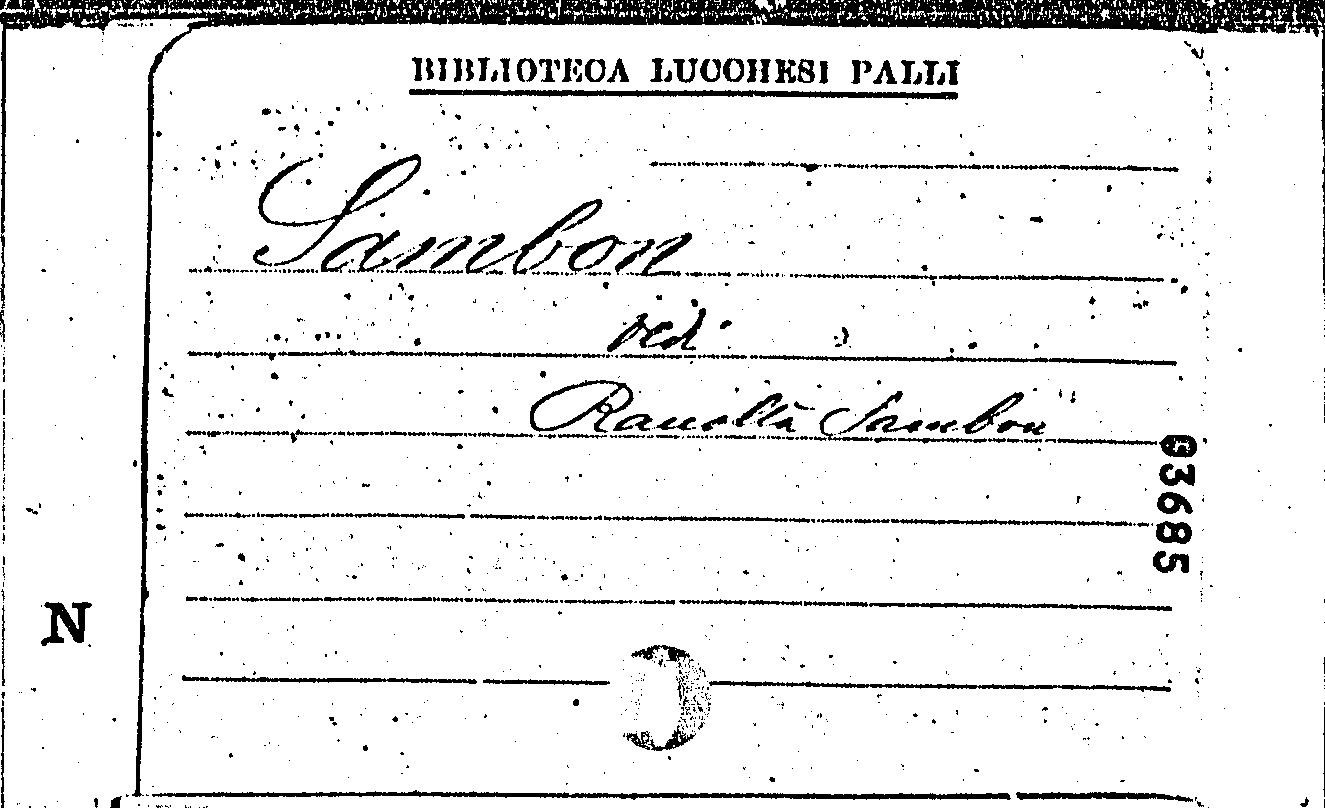 BIBLIOTECA LUCCHESI PALLI
Sambon
vedi
Raccolta Sambon
03685
N